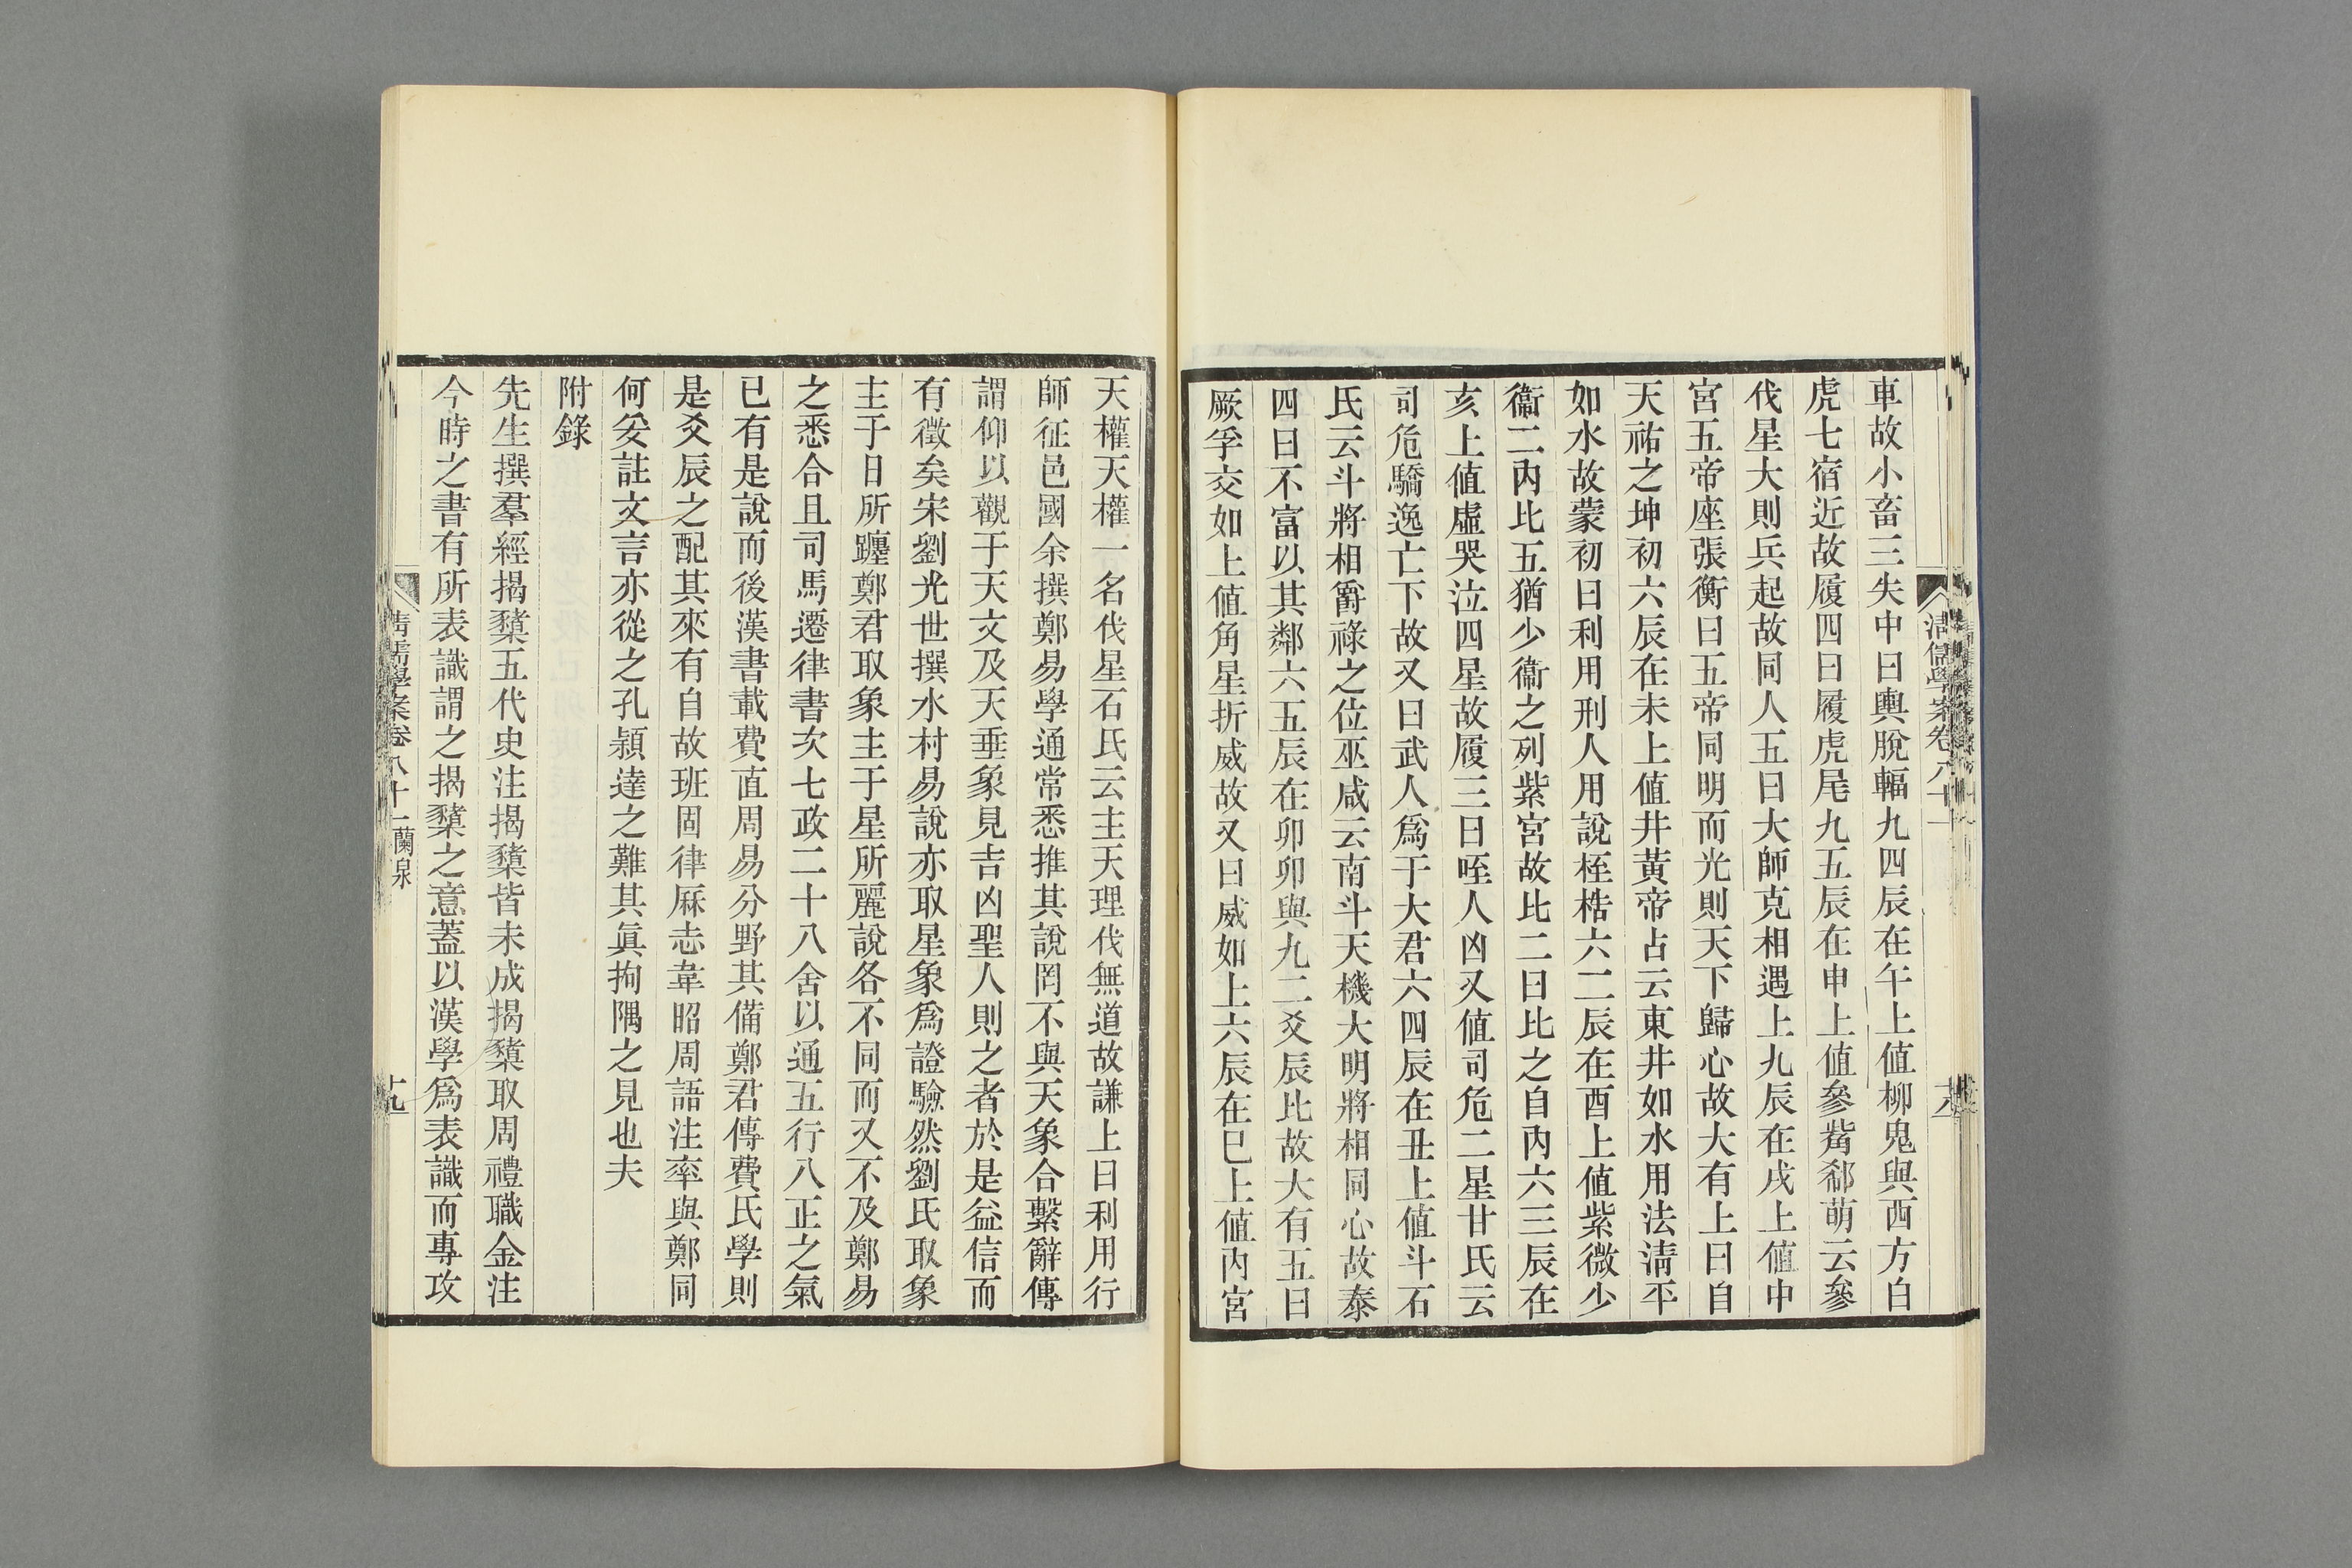 清儒學案卷八十一
十八
車故小畜三失中曰輿脫輻九四辰在午上値柳鬼與西方白
虎七宿近故履四曰履虎尾九五辰在申上値參觜郗萌云參
伐星大則兵起故同人五曰大師克相遇上九辰在戌上値中
宮五帝座張衡曰五帝同明而光則天下歸心故大有上曰自
天祐之坤初六辰在未上値井黃帝占云東井如水用法淸平
如水故蒙初曰利用刑人用說桎梏六二辰在酉上値紫微少
衞二內比五猶少衞之列紫宮故比二曰比之自內六三辰在
亥上値虛哭泣四星故履三曰咥人凶又値司危二星甘氏云
司危驕逸亡下故又曰武人爲于大君六四辰在丑上値斗石
氏云斗將相爵祿之位巫咸云南斗天機大明將相同心故泰
四曰不富以其鄰六五辰在卯卯與九二爻辰比故大有五曰
厥孚交如上値角星折威故又曰威如上六辰在巳上値內宮
天權天權一名伐星石氏云主天理伐無道故謙上曰利用行
師征邑國余撰鄭易學通常悉推其說罔不與天象合繫辭傳
謂仰以觀于天文及天垂象見吉凶聖人則之者於是益信而
有徵矣宋劉光世撰水村易說亦取星象爲證驗然劉氏取象
主于日所躔鄭君取象主于星所麗說各不同而又不及鄭易
之悉合且司馬遷律書次七政二十八舍以通五行八正之氣
已有是說而後漢書載費直周易分野其備鄭君傳費氏學則
是爻辰之配其來有自故班固律厤志韋昭周語注率與鄭同
何妥註文言亦從之孔穎達之難其眞拘隅之見也夫
附錄
先生撰羣經揭櫫五代史注揭櫫皆未成揭櫫取周禮職金注
今時之書有所表識謂之揭櫫之意蓋以漢學爲表識而專攻
清儒學案卷八十一 蘭泉
十九